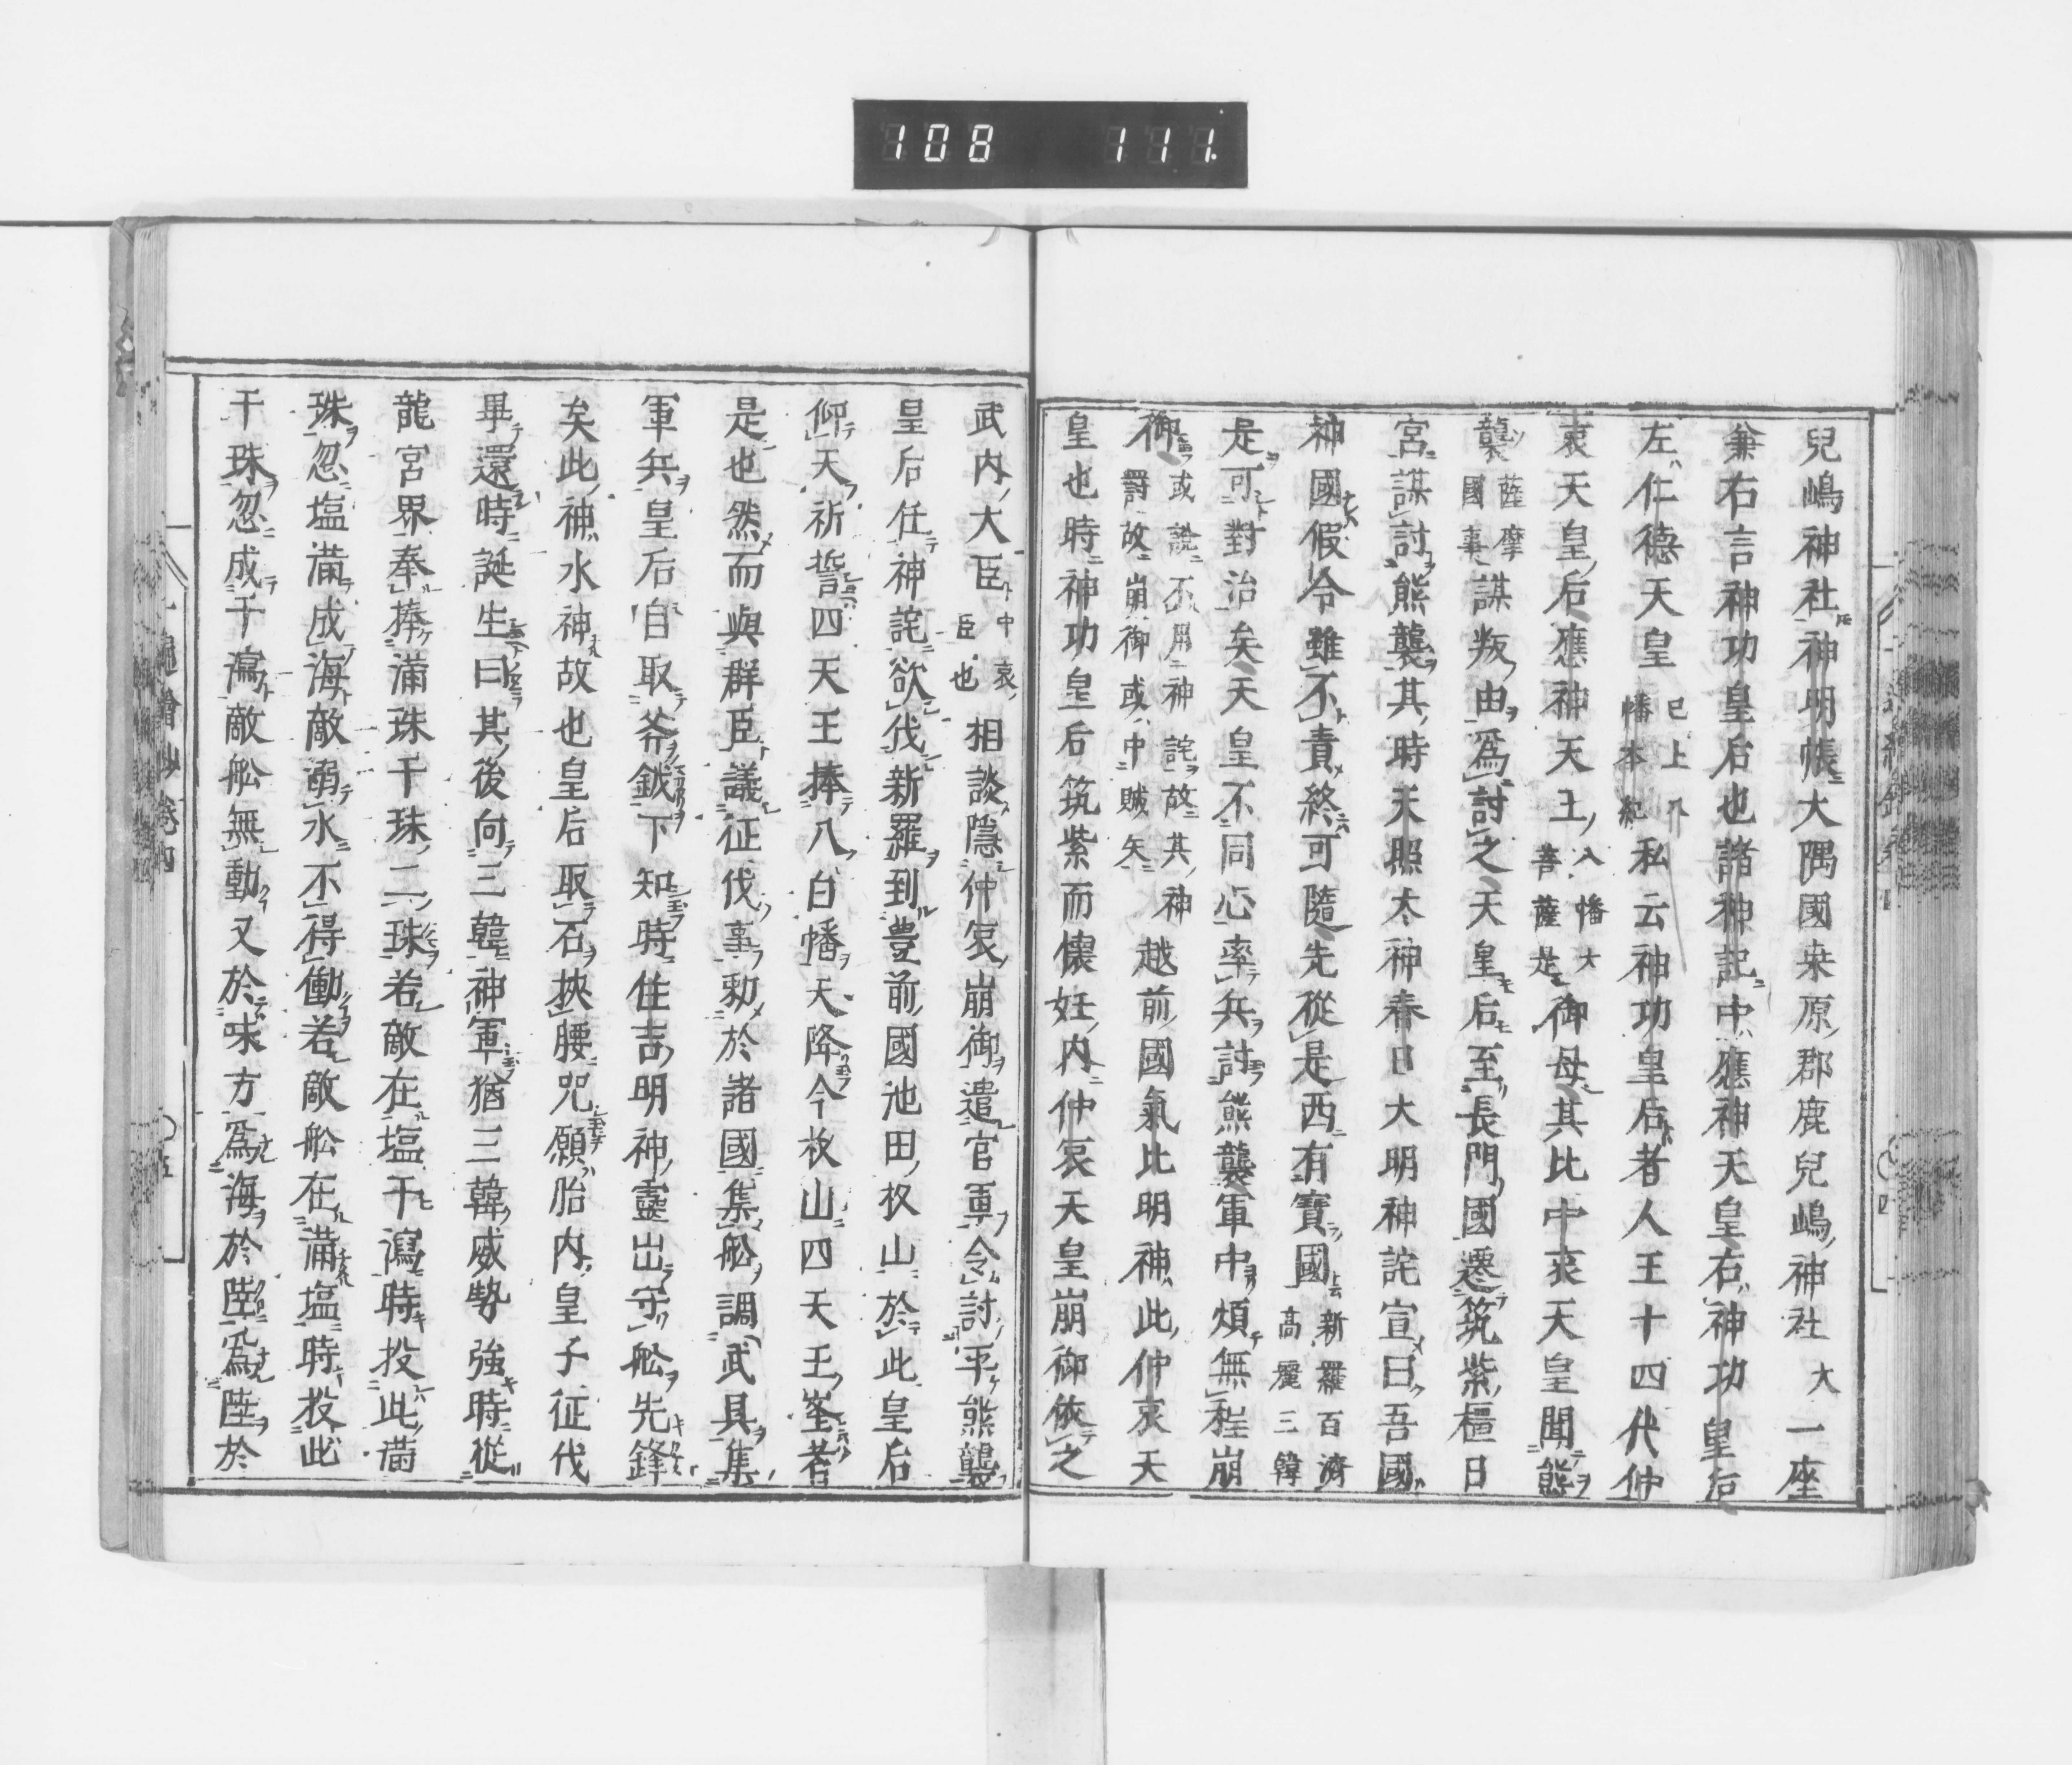 108 111
兒嶋神社神明帳大隅國桒原郡鹿兒嶋神社大一座
兼右言神功皇后也諸神記中應神天皇右神功皇后
左仁德天皇已上八幡本紀私云神功皇后者人王十四代仲
哀天皇后應神天王八幡大菩薩是御母其比中哀天皇聞熊
襲薩摩國事謀叛由爲討之天皇后至長門國遷筑紫橿日
宮謀討熊襲其時天照太神春日大明神詫宣曰吾國
神國假令雖不責終可隨先從是西有寶國新羅百濟高麗三韓
是可對治矣天皇不同心率兵討熊襲軍中煩無程崩
御或說不用神詫故其神罸故崩御或中賊矢越前國氣比明神此仲哀天
皇也時神功皇后筑紫而懐妊内仲哀天皇崩御依之
武内大臣中哀臣也相談隱仲哀崩御遣官軍令討平熊襲
皇后任神詫欲伐新羅到豊前國池田杦山於此皇后
仰天祈誓四天王捧八白幡天降今杦山四天王峯者
是也然而與群臣議征伐事勅於諸國集舩調武具集
軍兵皇后自取斧鉞下知時住吉明神靈出守舩先鋒
矣此神水神故也皇后取石挾腰咒願胎内皇子征伐
畢還時誕生曰其後向三韓神軍猶三韓威勢強時從
龍宮界奉捧滿珠干珠二珠若敵在塩干瀉時投此滿
珠忽塩滿成海敵溺水不得働若敵舩在滿塩時投此
干珠忽成干瀉敵舩無動又於味方爲海於陸爲陸於